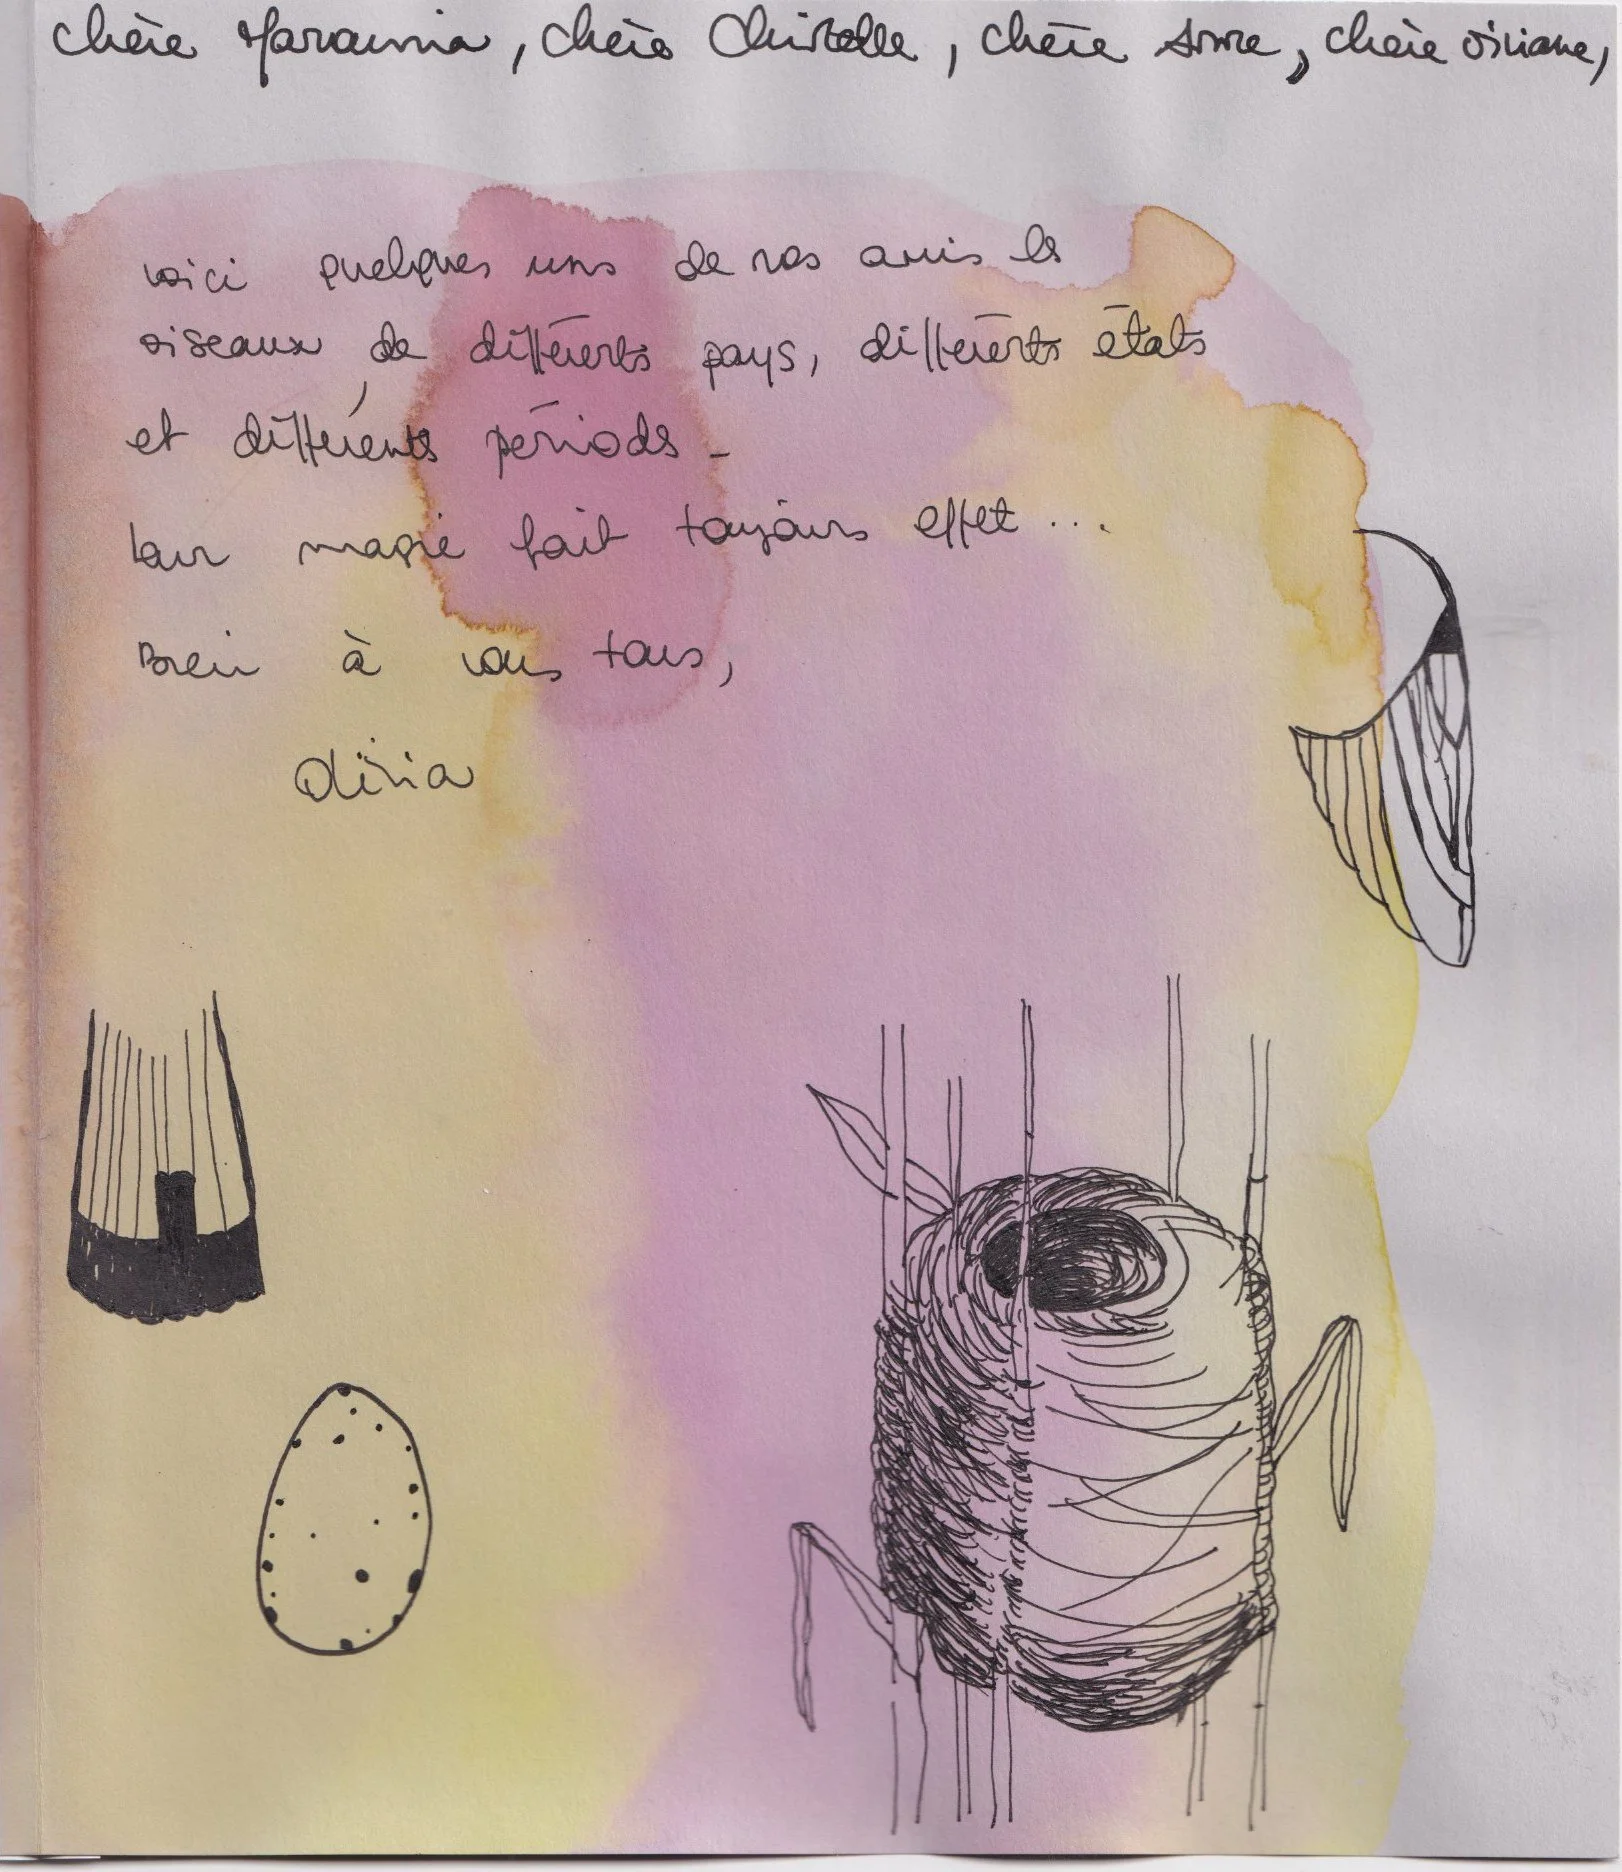 chère , chère Christelle, chère Anne, chère Viviane,
voici quelques uns de nos amis les
oiseaux, de différents pays, différents états
et différents périods -
leur magie fait toujours effet ...
Merci à vous tous,